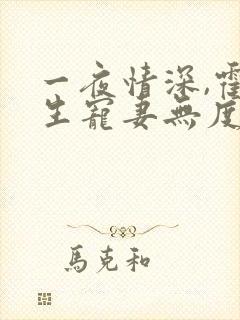 一夜情深,霍
生寵妻無度
馬克和